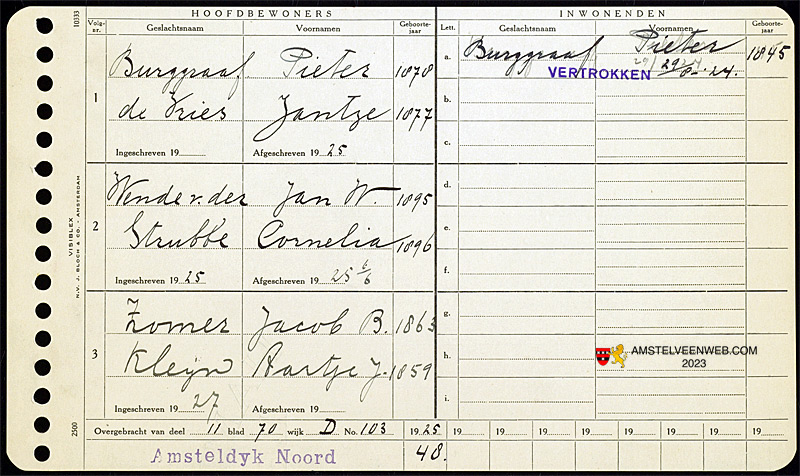 HOOFDBEWONERS
Volg-nr. Geslachtsnaam Voornamen Geboorte-jaar
1
Burggraaf Pieter 1878
de Vries Jantje 1877
Ingeschreven 19 Afgeschreven 19 25
2
Wende v. der Jan W. 1895
Strubbe Cornelia 1896
Ingeschreven 19 25 Afgeschreven 19 25 6/6
3
Zomer Jacob B. 1863
Kleijn Aartje J. 1859
Ingeschreven 19 27 Afgeschreven 19
INWONENDEN
Lett. Geslachtsnaam Voornamen Geboorte-jaar
a. Burggraaf Pieter 1845
VERTROKKEN 29/8-'24.
b.
c.
d.
e.
f.
g.
h.
i.
AMSTELVEENWEB.COM
2023
Overgebracht van deel 11 blad 70 wijk D No. 103 1925 19 19 19 19 19 19 19 19
Amsteldyk Noord 48.
10333
VISIBLEX
N.V. J. BLOCH & CO. - AMSTERDAM
2500